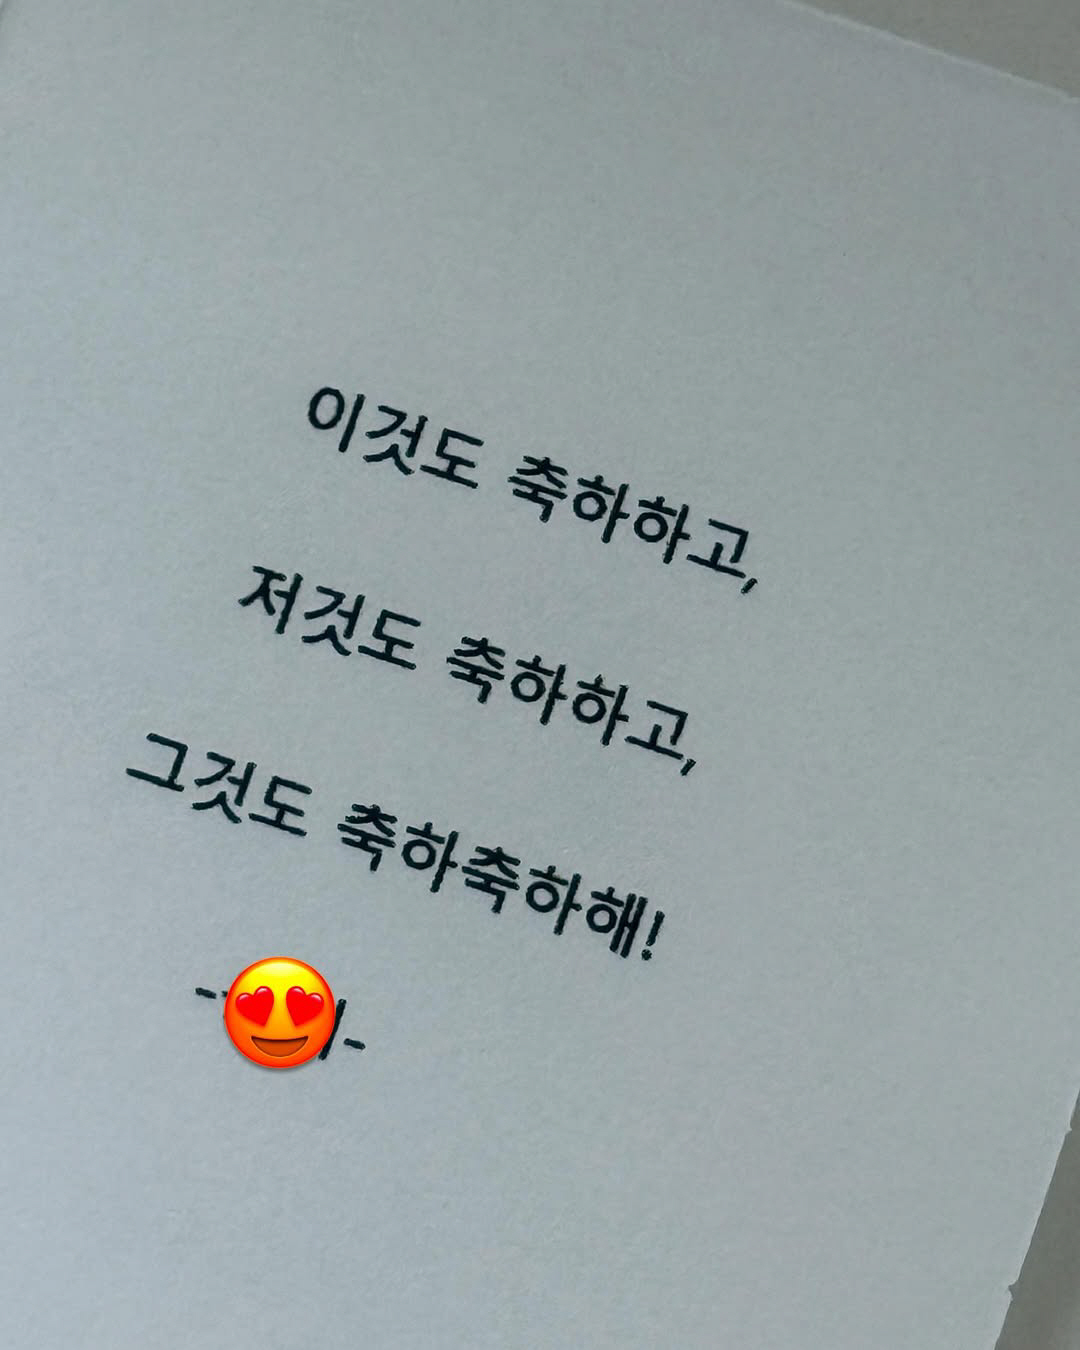 이것도 축하하고,
저것도 축하하고,
그것도 축하축하해!